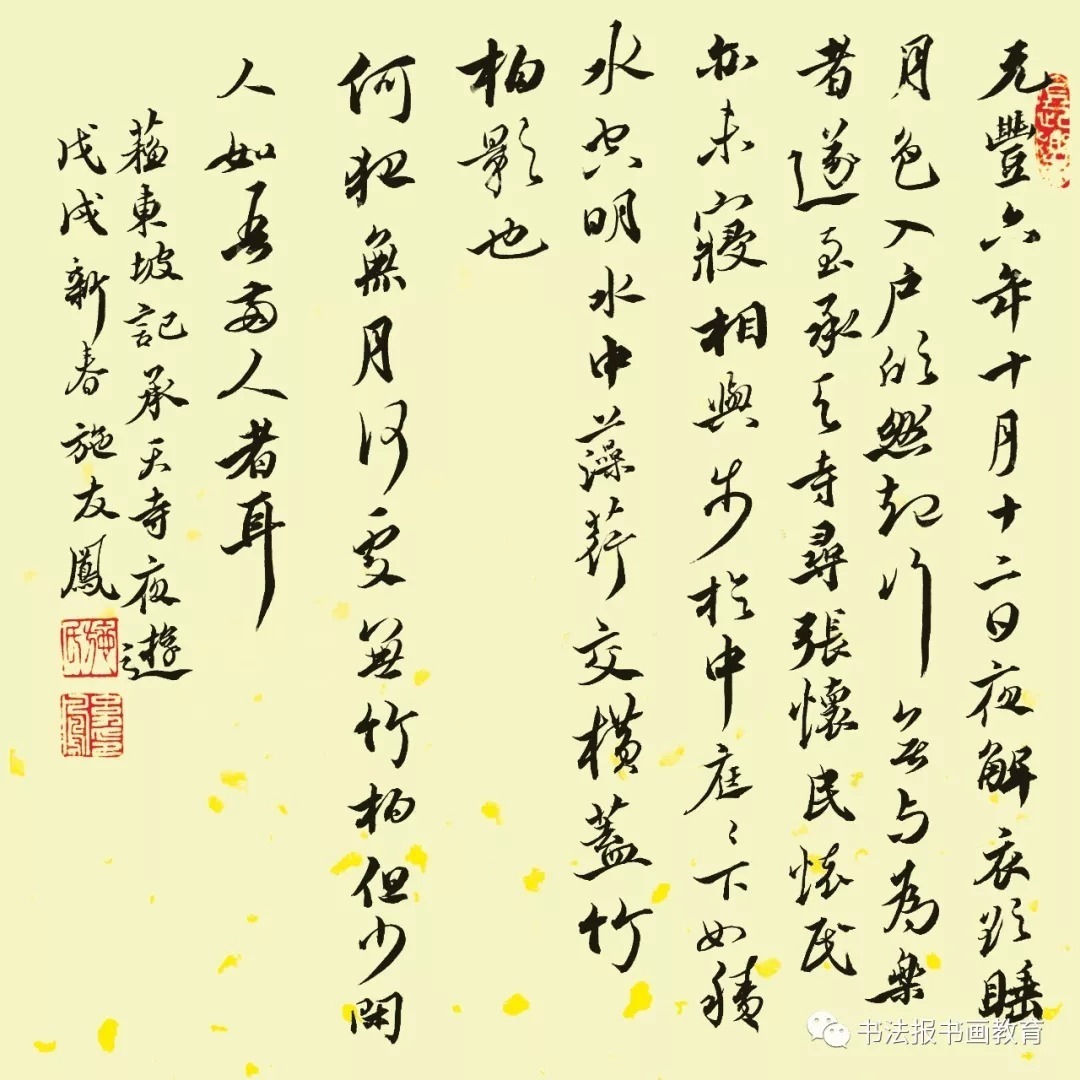 元豐六年十月十二日夜解衣欲睡
月色入户欣然起行無与為樂
者遂至承天寺尋張懷民懷民
亦未寢相與步於中庭〻下如積
水空明水中藻荇交橫蓋竹
柏影也
何夜無月何處無竹柏但少閑
人如吾兩人者耳
蘇東坡記承天寺夜遊
戊戌新春施友鳳
书法报书画教育